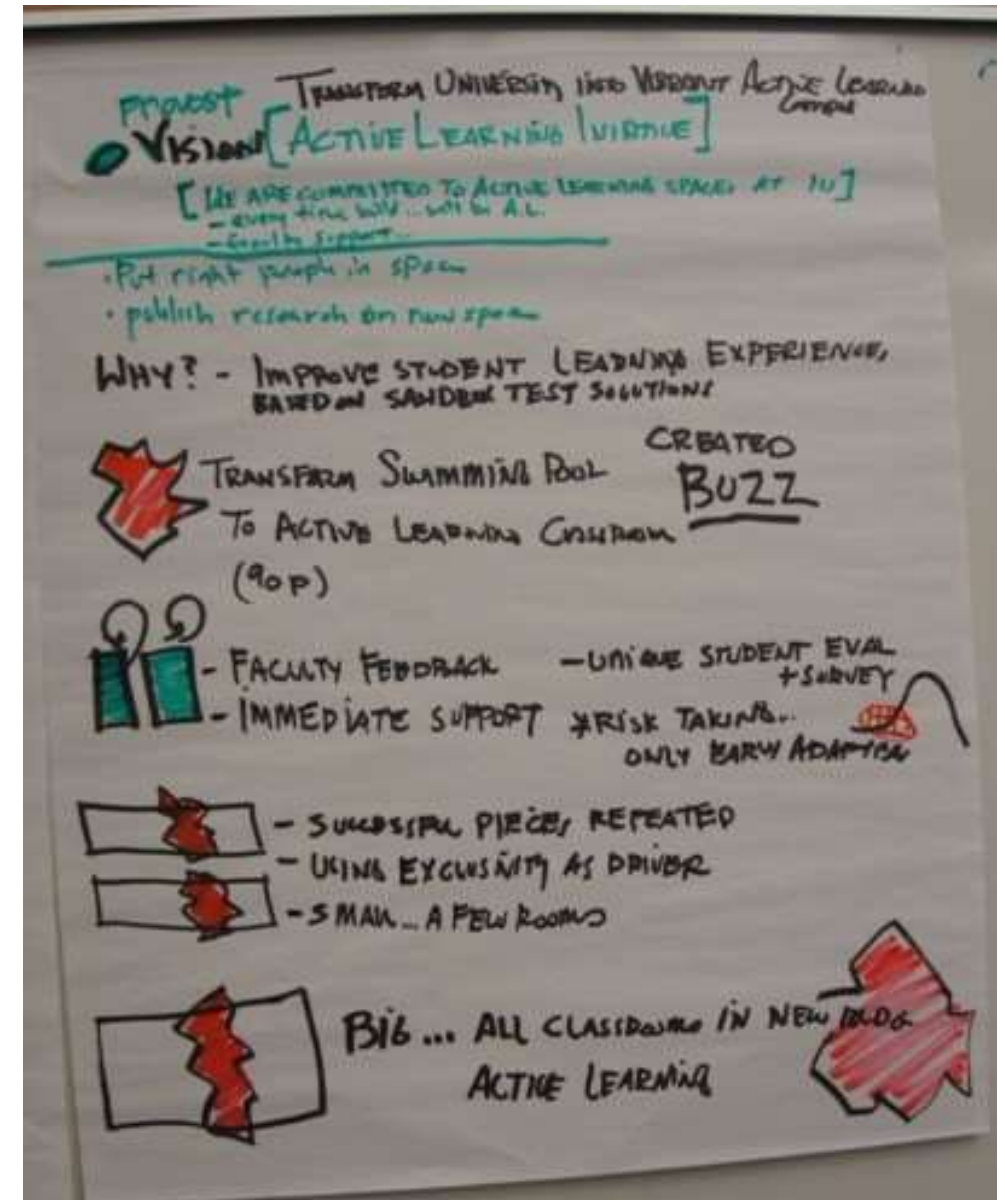 TRANSFORM UNIVERSITY INTO VIBRANT ACTIVE LEARNING
Provost
VISION [ACTIVE LEARNING
[WE ARE COMMITTED TO ACTIVE LEARNING SPACES AT IU]
- every time build... will be A.L.
- faculty support...
• Put right people in space
• publish research on new space
WHY? - IMPROVE STUDENT LEARNING EXPERIENCE,
BASED ON SANDBOX TEST SOLUTIONS
TRANSFORM SWIMMING POOL
TO ACTIVE LEARNING CLASSROOM
(90P)
CREATED
BUZZ
- FACULTY FEEDBACK
- IMMEDIATE SUPPORT
- UNIQUE STUDENT EVAL
+ SURVEY
*RISK TAKING..
ONLY EARLY
- SUCCESSFUL PIECES REPEATED
- USING EXCLUSIVITY AS DRIVER
- SMALL... A FEW ROOMS
BIG... ALL CLASSROOMS IN NEW BLDG
ACTIVE LEARNING